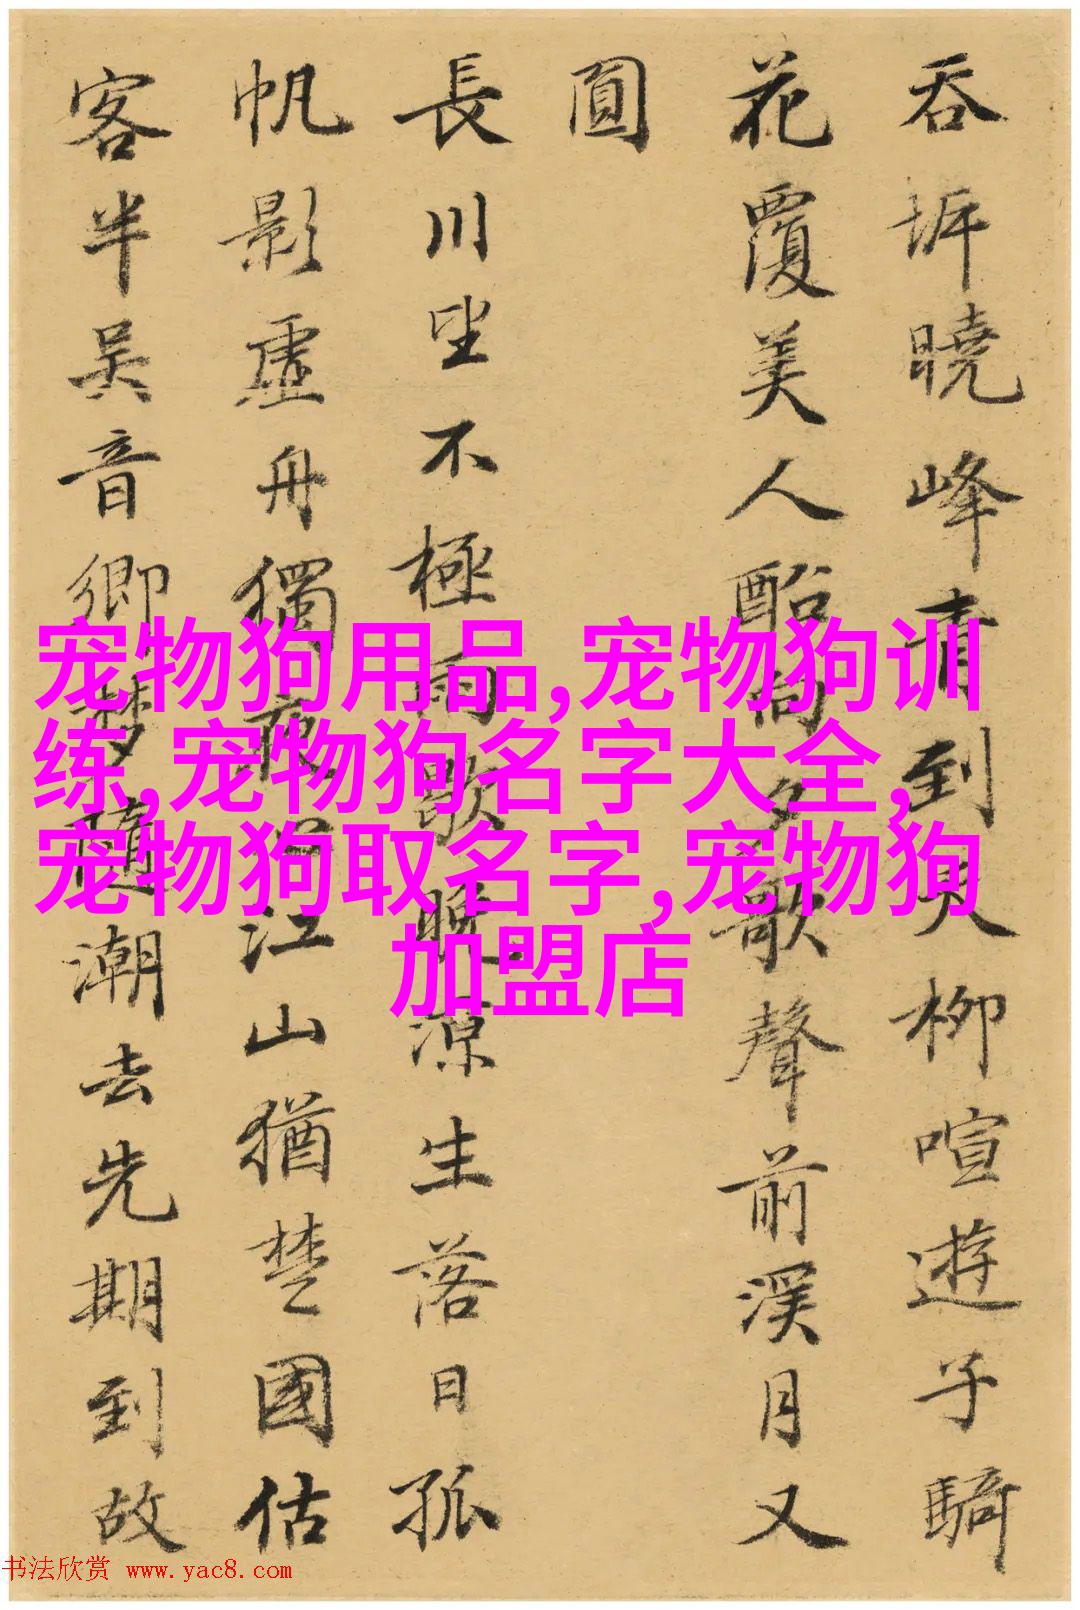 吞坼曉峰青到天柳喧遊子騎
花覆美人船向夕歌聲前溪月又
圓
長川坐不極雨歇晚涼生落日孤
帆影虛舟獨夜心江山猶楚國估
客半吳音鄉夢隨潮去先期到故
宠物狗用品,宠物狗训
练,宠物狗名字大全,
宠物狗取名字,宠物狗
加盟店
书法欣赏 www.yac8.com